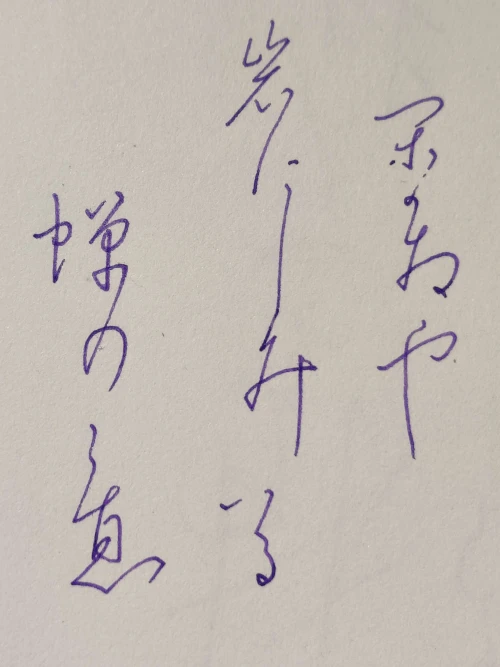 閑さや
岩にしみ入る
蝉のこ恵